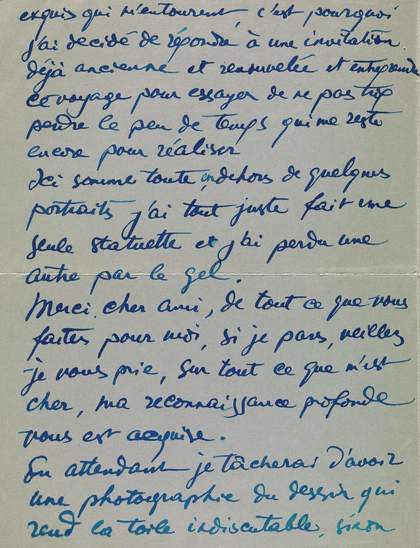 exquis qui m'entourent, c'est pourquoi
j'ai décidé de répondre à une invitation
déjà ancienne et renouvelée et entreprendre
ce voyage pour essayer de ne pas trop
perdre le peu de temps qui me reste
encore pour réaliser
Ici somme toute, en dehors de quelques
portraits j'ai tout juste fait une
seule statuette et j'ai perdu une
autre par le gel.
Merci, cher ami, de tout ce que vous
faites pour moi, si je pars, veillez
je vous prie, sur tout ce que m'est
cher, ma reconnaissance profonde
vous est acquise.
En attendant je tâcherai d'avoir
une photographie du dessin qui
rend la toile indiscutable, sinon